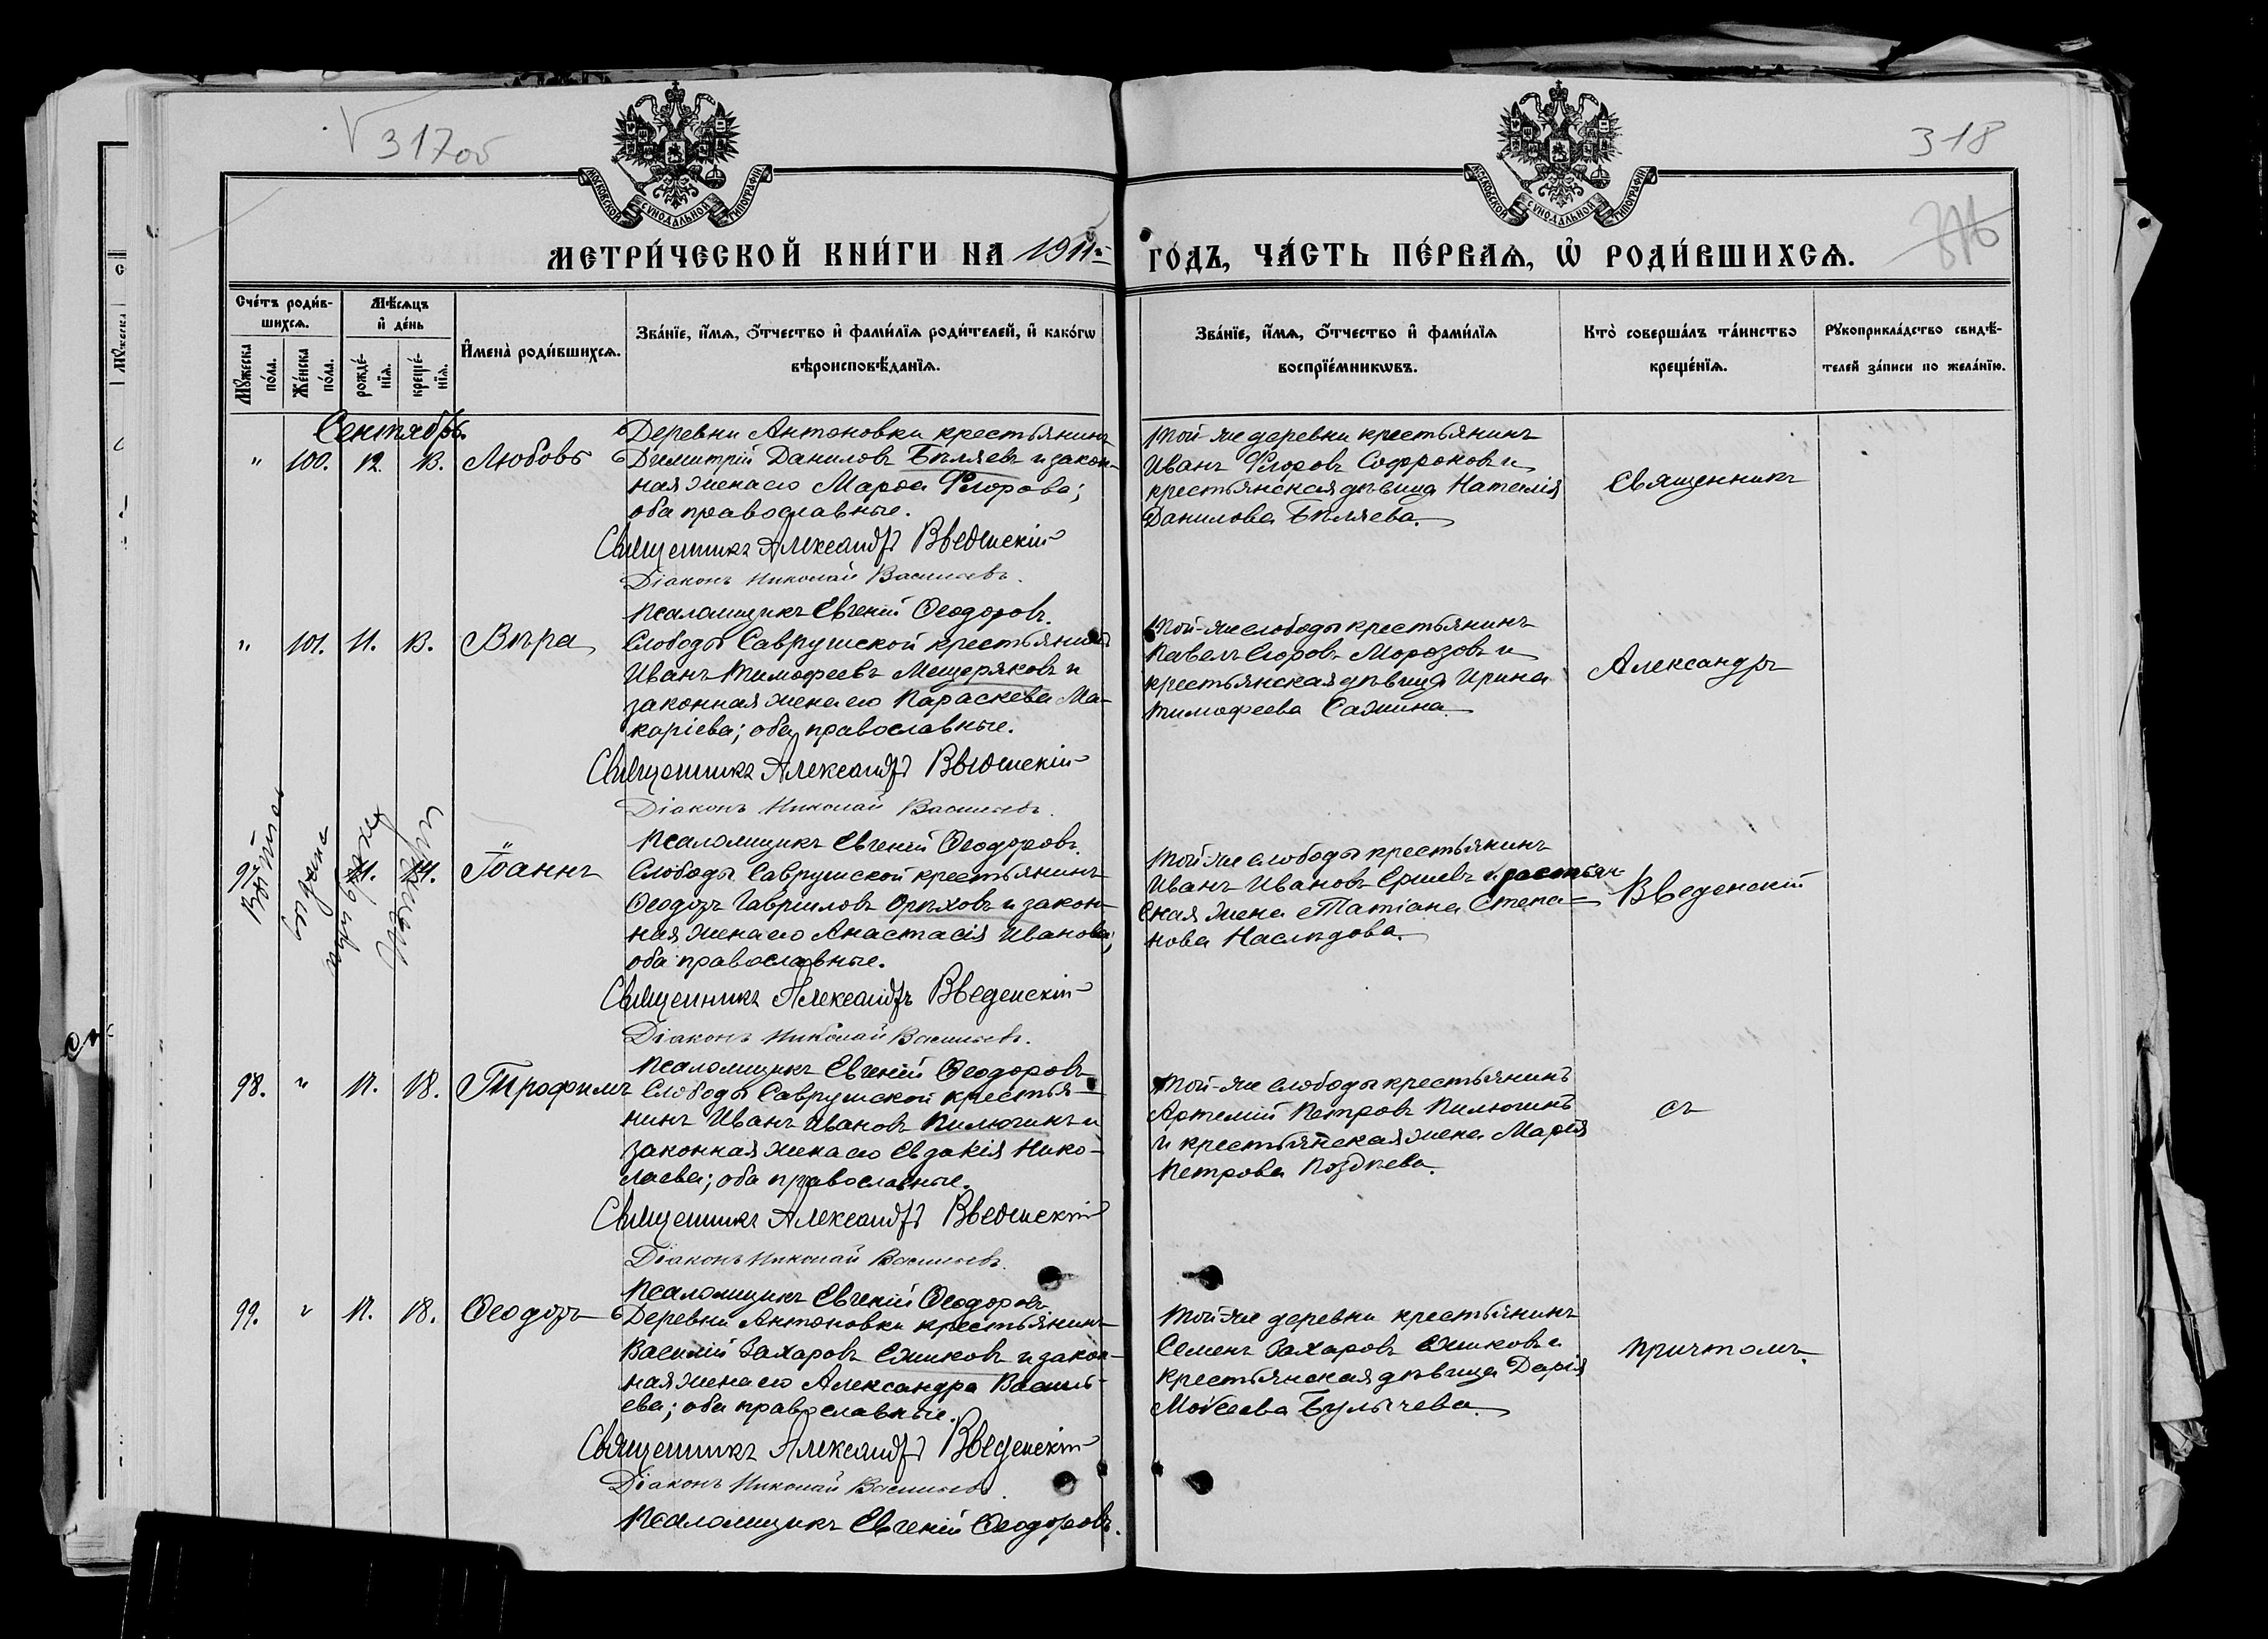 317об
318
МОСКОВСКОЙ СѴНОДАЛЬНОЙ ТИПОГРАФІИ
МОСКОВСКОЙ СѴНОДАЛЬНОЙ ТИПОГРАФІИ
МЕТРИ́ЧЕСКОЙ КНИ́ГИ НА 1911-й
ГО́ДЪ, ЧА́СТЬ ПЕ́РВАѦ, Ѡ҆ РОДИ́ВШИХСѦ.
Сче́тъ роди́в-
шихсѧ.
Мѣ́сѧцъ
и҆ де́нь
Мꙋ́жеска
по́ла.
Же́нска
по́ла.
рожде́-
нїѧ.
креще́-
нїѧ.
И҆мена̀ роди́вшихсѧ.
Зва́нїе, и҆́мѧ, ѻ҆́тчество и҆ фами́лїѧ роди́телей, и҆ како́гѡ
вѣроисповѣ́данїѧ.
Зва́нїе, и҆́мѧ, ѻ҆́тчество и҆ фами́лїѧ
воспрїе́мникѡвъ.
Кто̀ соверша́лъ та́инство
креще́нїѧ.
Рꙋкоприкла́дство свидѣ́-
телей за́писи по жела́нїю.
Сентябрь.
" 100. 12. 13. Любовь
Деревни Антоновки крестьянинъ
Димитрій Даниловъ Бѣляевъ и закон-
ная жена его Марѳа Ѳеодорова;
оба православные.
Священникъ Александръ Введенскій
Діаконъ Николай Васильевъ.
Псаломщикъ Евгеній Ѳеодоровъ.
Той-же деревни крестьянинъ
Иванъ Ѳеодоровъ Софроновъ и
крестьянская дѣвица Наталія
Данилова Бѣляева.
Священникъ
" 101. 11. 13. Вѣра
Слободы Саврушской крестьянинъ
Иванъ Тимоѳеевъ Мещеряковъ и
законная жена его Параскева Ма-
каріева; оба православные.
Священникъ Александръ Введенскій
Діаконъ Николай Васильевъ.
Псаломщикъ Евгеній Ѳеодоровъ.
Той-же слободы крестьянинъ
Павелъ Егоровъ Морозовъ и
крестьянская дѣвица Ирина
Тимоѳеева Сажина.
Александръ
97. 11. 14. Іоаннъ
Слободы Саврушской крестьянинъ
Ѳеодоръ Гавриловъ Орѣховъ и закон-
ная жена его Анастасія Иванова;
оба православные.
Священникъ Александръ Введенскій
Діаконъ Николай Васильевъ.
Псаломщикъ Евгеній Ѳеодоровъ
Той-же слободы крестьянинъ
Иванъ Ивановъ Ершевъ и крестьян-
ская жена Татіана Степа-
нова Наслѣдова.
Введенскій
98. " 17. 18. Трофимъ
Слободы Саврушской крестья-
нинъ Иванъ Ивановъ Пилюгинъ и
законная жена его Евдокія Нико-
лаева; оба православные.
Священникъ Александръ Введенскій
Діаконъ Николай Васильевъ.
Псаломщикъ Евгеній Ѳеодоровъ
Той-же слободы крестьянинъ
Артемій Петровъ Пилюгинъ
и крестьянская жена Марія
Петрова Позднева.
съ
99. " 17. 18. Ѳеодоръ
Деревни Антоновки крестьянинъ
Василій Захаровъ Ежиковъ и закон-
ная жена его Александра Василь-
ева; оба православные.
Священникъ Александръ Введенскій
Діаконъ Николай Васильевъ.
Псаломщикъ Евгеній Ѳеодоровъ.
Той-же деревни крестьянинъ
Семенъ Захаровъ Ежиковъ и
крестьянская дѣвица Дарія
Моѵсеева Булычева.
причтомъ.